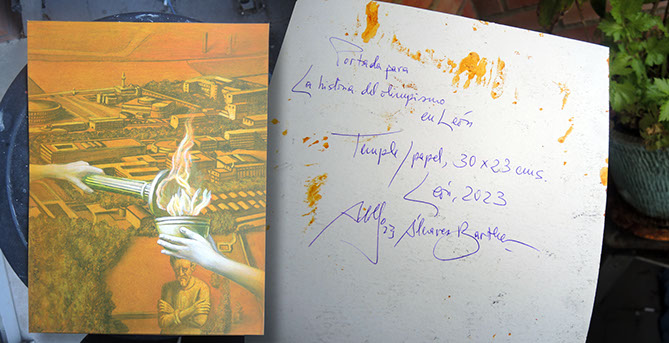 Portada para
La historia del olimpismo
en León
Temple/papel, 30 x 23 cms.
León, 2023
Adolfo 23 Álvarez Barthe